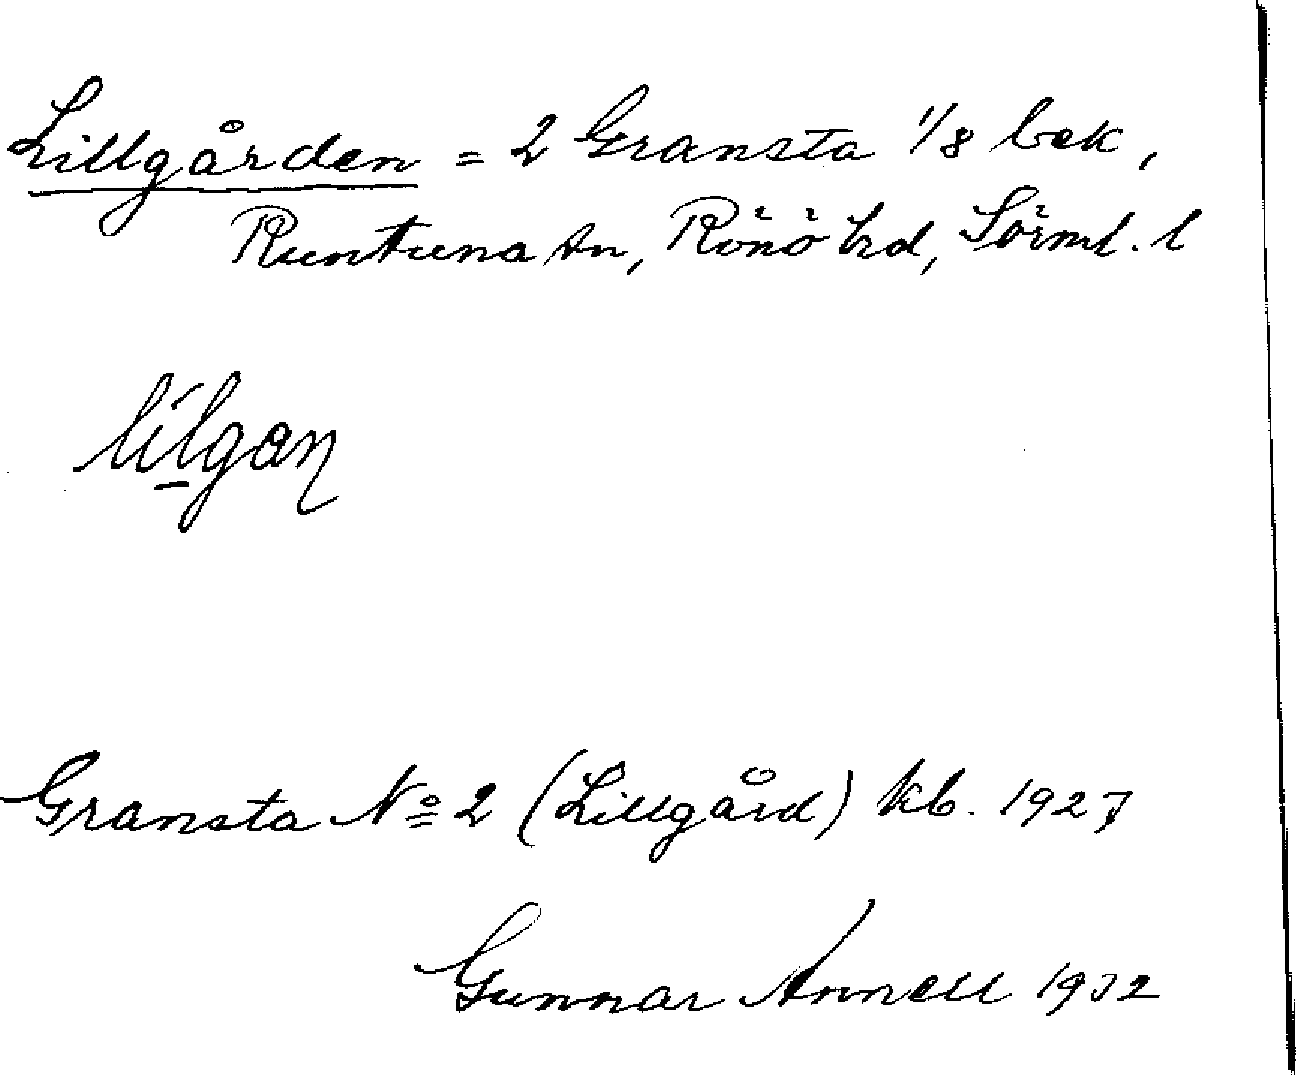 Lillgården = 2 Gransta 1/8 bek,
Runtuna sn, Rönö hd, Sörml. l
Gransta No 2 (Lillgård) kb. 1927
Gunnar Annell 1932